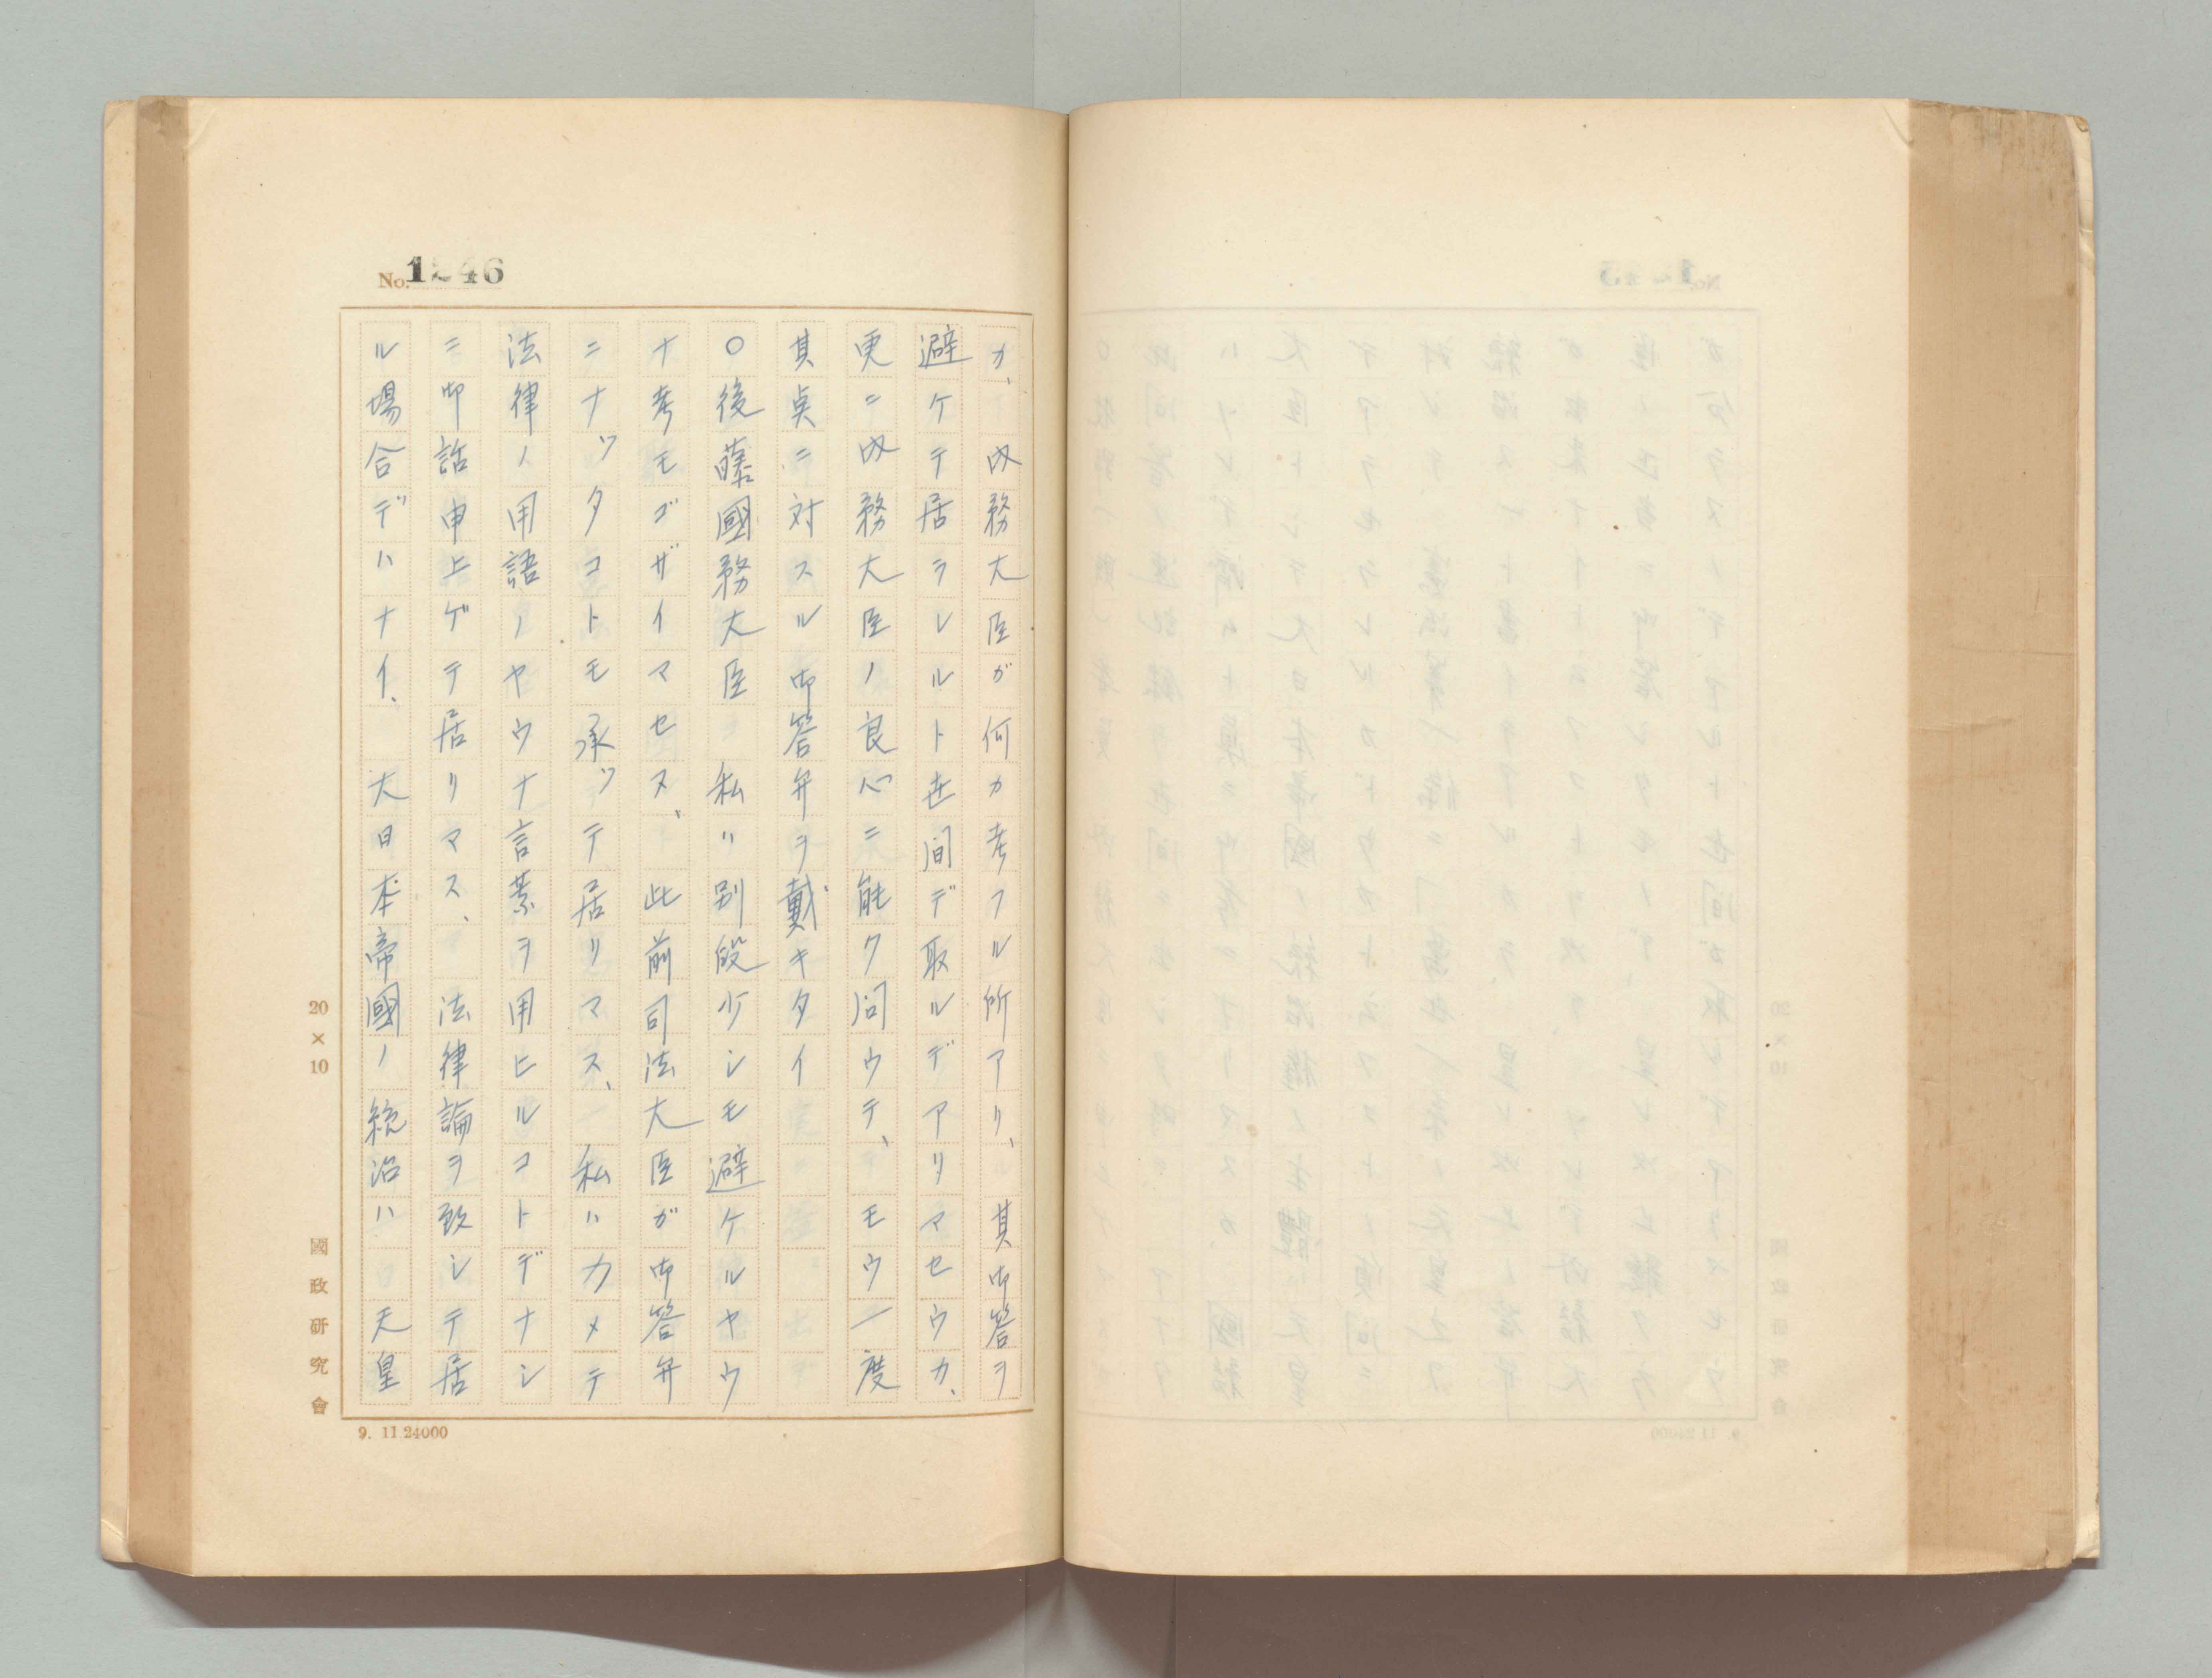 No. 1246
カ、内務大臣ガ何カ考フル所アリ、其御答ヲ
避ケテ居ラレルト世間デ取ルデアリマセウカ、
更ニ内務大臣ノ良心ニ能ク問ウテ、モウ一度
其点ニ対スル御答弁ヲ戴キタイ
〇後藤國務大臣 私ハ別段少シモ避ケルヤウ
ナ考モゴザイマセヌ、此前司法大臣ガ御答弁
ニナッタコトモ承ッテ居リマス、私ハカメテ
法律ノ用語ノヤウナ言葉ヲ用ヒルコトデナシ
ニ御話申上ゲテ居リマス、法律論ヲ致シテ居
ル場合デハナイ、大日本帝國ノ統治ハ天皇
20×10
國政研究會
9. 11.24000